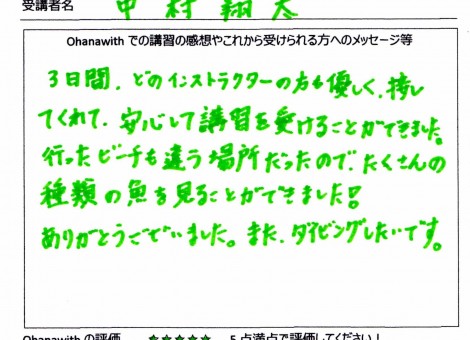 受講者名 中村翔太
Ohanawith での講習の感想やこれから受けられる方へのメッセージ等
3日間、どのインストラクターの方も優しく、接し
てくれて、安心して講習を受けることができました。
行ったビーチも違う場所だったので、たくさんの
種類の魚を見ることができました!
ありがとうございました。また、ダイビングしたいです。
Ohanawith の評価 ★★★★★ 5点満点で評価してください!